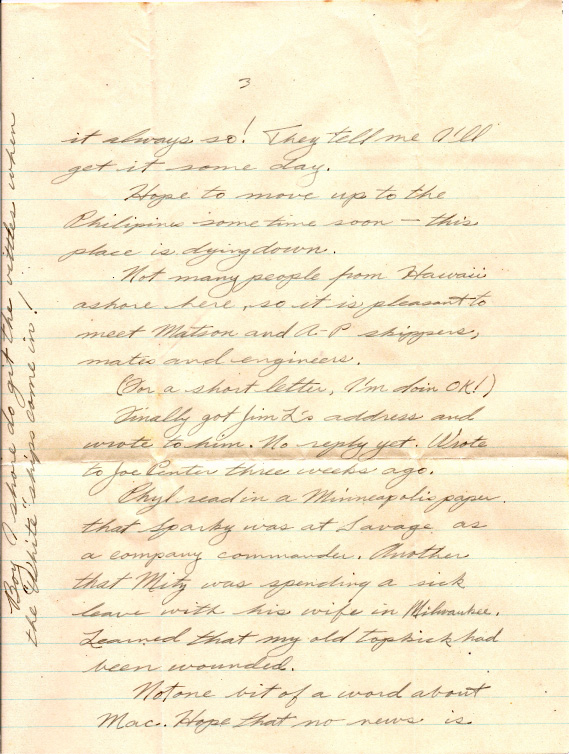 3
it always so! They tell me I'll
get it some day.
Hope to move up to the
Philipines some time soon — this
place is dying down.
Not many people from Hawaii
ashore here, so it is pleasant to
meet Matson and A-P skippers,
mates and engineers.
(For a short letter, I'm doin OK!)
Finally got Jim L's address and
wrote to him. No reply yet. Wrote
to Joe Center three weeks ago.
Phyl read in a Minneapolis paper
that Sparky was at Savage as
a company commander. Another
that Mitz was spending a sick
leave with his wife in Milwaukee.
Learned that my old topkick had
been wounded.
Not one bit of a word about
Mac. Hope that no news is
Boy I shore do get the vittles when
the "White" ships come in!